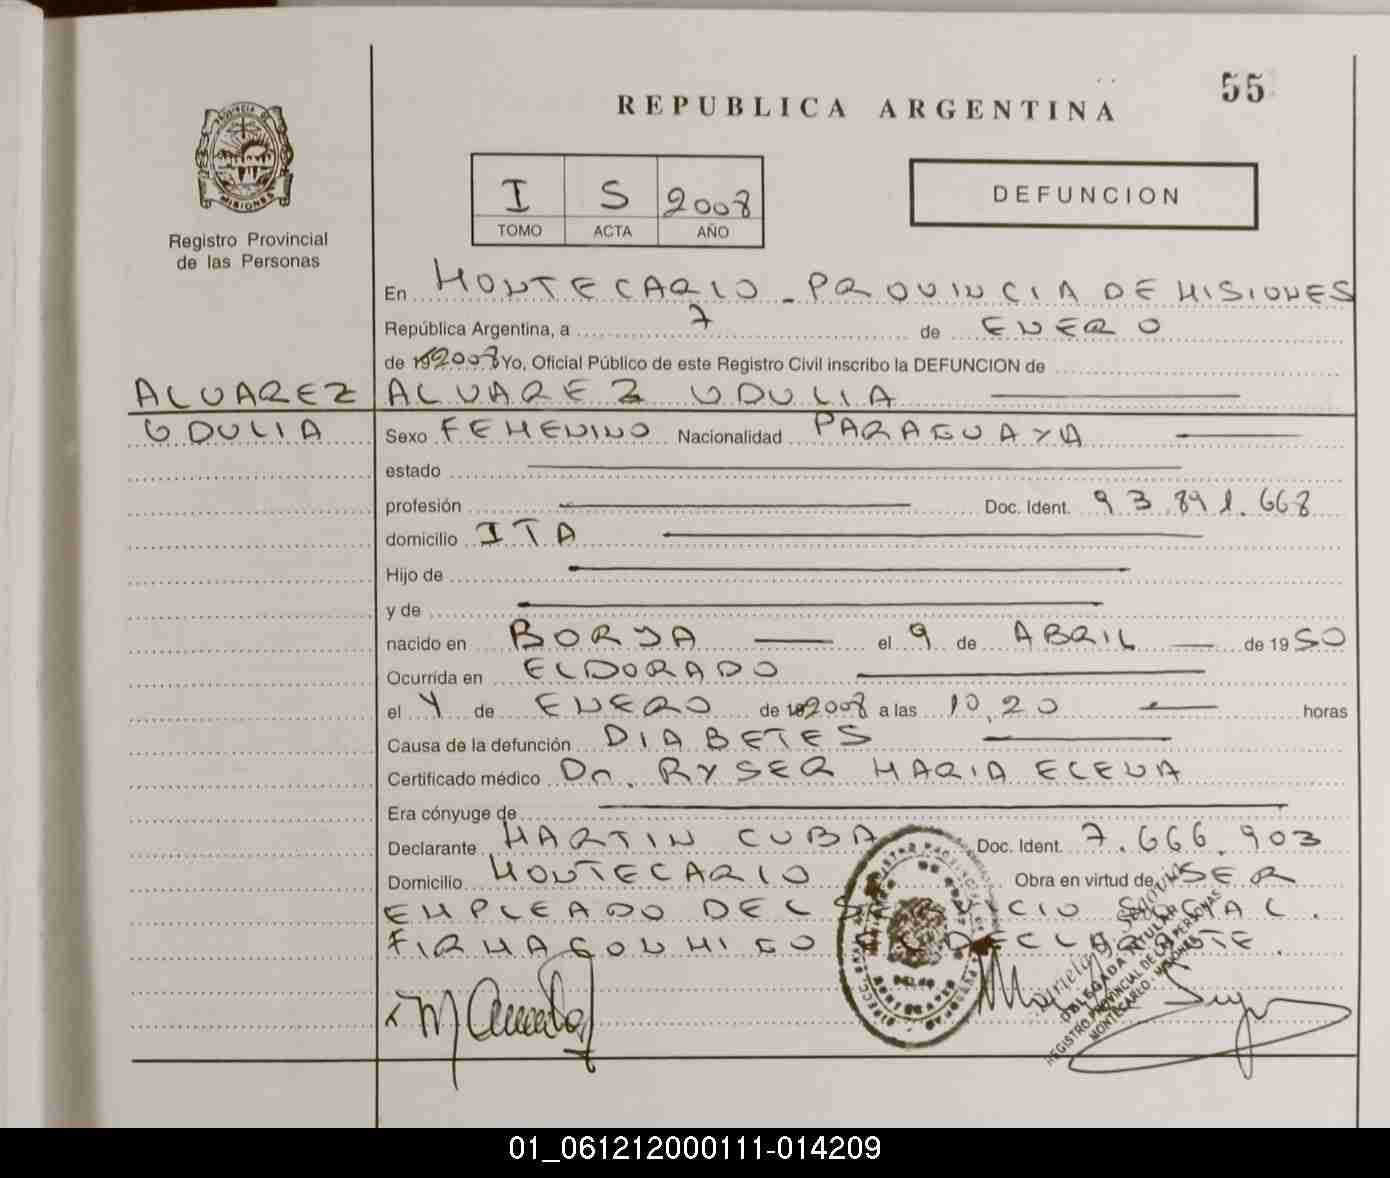 55
REPUBLICA ARGENTINA
PROVINCIA DE
MISIONES
Registro Provincial
de las Personas
I S 2008
TOMO ACTA AÑO
DEFUNCION
En MONTECARLO - PROVINCIA DE MISIONES
República Argentina, a 7 de ENERO
de 2008 Yo, Oficial Público de este Registro Civil inscribo la DEFUNCION de
ALVAREZ ALVAREZ UDULIA
UDULIA Sexo FEMENINO Nacionalidad PARAGUAYA
estado
profesión Doc. Ident. 93.891.668
domicilio ITA
Hijo de
y de
nacido en BORJA el 9 de ABRIL de 1950
Ocurrida en ELDORADO
el 4 de ENERO de 2008 a las 10,20 horas
Causa de la defunción DIABETES
Certificado médico Dr. RYSER MARIA ELENA
Era cónyuge de
Declarante MARTIN CUBA Doc. Ident. 7.666.903
Domicilio MONTECARLO Obra en virtud de SER
EMPLEADO DEL SERVICIO SOCIAL.
FIRMA CONMIGO EL DECLARANTE.
DELEGADA TITULAR
REGISTRO PROVINCIAL DE LAS PERSONAS
MONTECARLO - MISIONES
01_061212000111-014209